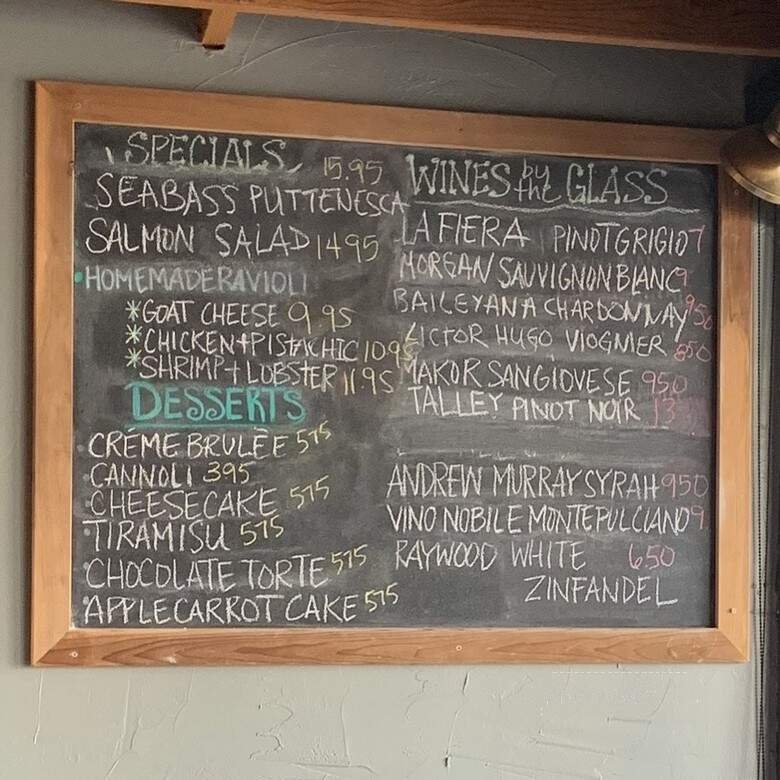 SPECIALS
15.95
SEABASS PUTTENESCA
SALMON SALAD 1495
HOMEMADE RAVIOLI
*GOAT CHEESE 9 95
*CHICKEN+PISTACHIC 1095
*SHRIMP+LOBSTER 1195
DESSERTS
CRÉME BRULÉE 575
CANNOLI 395
CHEESECAKE 575
TIRAMISU 575
CHOCOLATE TORTE 575
APPLE CARROT CAKE 575
WINES by the GLASS
LA FIERA PINOT GRIGIO 7
MORGAN SAUVIGNON BLANC 9
BAILEYANA CHARDONNAY 950
VICTOR HUGO VIOGNIER 850
MAKOR SANGIOVESE 950
TALLEY PINOT NOIR 13
ANDREW MURRAY SYRAH 950
VINO NOBILE MONTEPULCIANO 9
RAYWOOD WHITE 650
ZINFANDEL